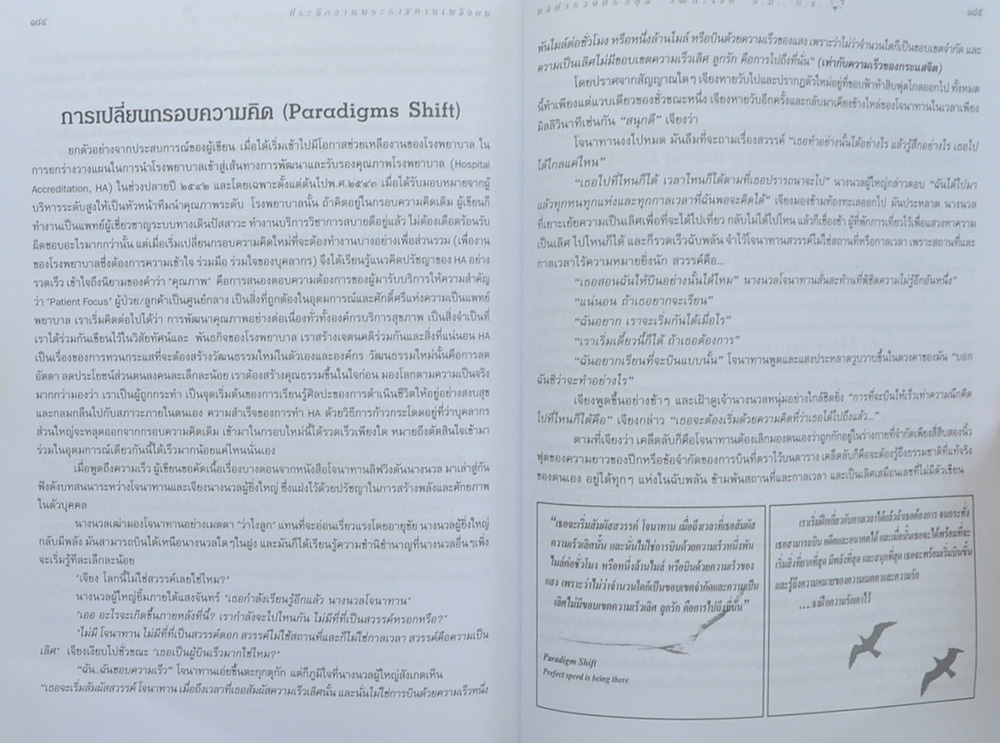 ๑๘๔
ที่ระลึกงานพระราชทานเพลิงศพ
การเปลี่ยนกรอบความคิด (Paradigms Shift)
ยกตัวอย่างจากประสบการณ์ของผู้เขียน เมื่อได้เริ่มเข้าไปมีโอกาสช่วยเหลืองานของโรงพยาบาล ใน
การยกร่างวางแผนในการนำโรงพยาบาลเข้าสู่เส้นทางการพัฒนาและรับรองคุณภาพโรงพยาบาล (Hospital
Accreditation, HA) ในช่วงปลายปี ๒๕๔๒ และโดยเฉพาะตั้งแต่ต้นปีพ.ศ.๒๕๔๓ เมื่อได้รับมอบหมายจากผู้
บริหารระดับสูงให้เป็นหัวหน้าทีมนำคุณภาพระดับ โรงพยาบาลนั้น ถ้าคิดอยู่ในกรอบความคิดเดิม ผู้เขียนก็
ทำงานเป็นแพทย์ผู้เชี่ยวชาญระบบทางเดินปัสสาวะ ทำงานบริการวิชาการสบายดีอยู่แล้ว ไม่ต้องเดือดร้อนรับ
ผิดชอบอะไรมากกว่านั้น แต่เมื่อเริ่มเปลี่ยนกรอบความคิดใหม่ที่จะต้องทำงานบางอย่างเพื่อส่วนรวม (เพื่องาน
ของโรงพยาบาลซึ่งต้องการความเข้าใจ ร่วมมือ ร่วมใจของบุคลากร) จึงได้เรียนรู้แนวคิดปรัชญาของ HA อย่าง
รวดเร็ว เข้าใจถึงนิยามของคำว่า "คุณภาพ" คือการสนองตอบความต้องการของผู้มารับบริการให้ความสำคัญ
ว่า "Patient Focus" ผู้ป่วย/ลูกค้าเป็นศูนย์กลาง เป็นสิ่งที่ถูกต้องในอุดมการณ์และศักดิ์ศรีแห่งความเป็นแพทย์
พยาบาล เราเริ่มคิดต่อไปได้ว่า การพัฒนาคุณภาพอย่างต่อเนื่องทั่วทั้งองค์กรบริการสุขภาพ เป็นสิ่งจำเป็นที่
เราได้ร่วมกันเขียนไว้ในวิสัยทัศน์และ พันธกิจของโรงพยาบาล เราสร้างเจตนคติร่วมกันและสิ่งที่แน่นอน HA
เป็นเรื่องของการทวนกระแสที่จะต้องสร้างวัฒนธรรมใหม่ในตัวเองและองค์กร วัฒนธรรมใหม่นั้นคือการลด
อัตตา ลดประโยชน์ส่วนตนลงคนละเล็กละน้อย เราต้องสร้างคุณธรรมขึ้นในใจก่อน มองโลกตามความเป็นจริง
มากกว่ามองว่า เราเป็นผู้ถูกกระทำ เป็นจุดเริ่มต้นของการเรียนรู้ศิลปะของการดำเนินชีวิตให้อยู่อย่างสงบสุข
และกลมกลืนไปกับสภาวะภายในตนเอง ความสำเร็จของการทำ HA ด้วยวิธีการก้าวกระโดดอยู่ที่ว่าบุคลากร
ส่วนใหญ่จะหลุดออกจากกรอบความคิดเดิม เข้ามาในกรอบใหม่นี้ได้รวดเร็วเพียงใด หมายถึงตัดสินใจเข้ามา
ร่วมในอุดมการณ์เดียวกันนี้ได้เร็วมากน้อยแค่ไหนนั่นเอง
เมื่อพูดถึงความเร็ว ผู้เขียนขอคัดเนื้อเรื่องบางตอนจากหนังสือโจนาทานลิฟวิงตันนางนวล มาเล่าสู่กัน
ฟังดังบทสนนาระหว่างโจนาทานและเจียงนางนวลผู้ยิ่งใหญ่ ซึ่งแฝงไว้ด้วยปรัชญาในการสร้างพลังและศักยภาพ
ในตัวบุคคล
นางนวลเฒ่ามองโจนาทานอย่างเมตตา "ว่าไงลูก" แทนที่จะอ่อนเรี่ยวแรงโดยอายุขัย นางนวลผู้ยิ่งใหญ่
กลับมีพลัง มันสามารถบินได้เหนือนางนวลใดๆในฝูง และมันก็ได้เรียนรู้ความชำนิชำนาญที่นางนวลอื่นๆเพิ่ง
จะเริ่มรู้ทีละเล็กละน้อย
"เจียง โลกนี้ไม่ใช่สวรรค์เลยใช่ไหม?"
นางนวลผู้ใหญ่ยิ้มภายใต้แสงจันทร์ "เธอกำลังเรียนรู้อีกแล้ว นางนวลโจนาทาน"
"เออ อะไรจะเกิดขึ้นภายหลังที่นี้? เรากำลังจะไปไหนกัน ไม่มีที่ที่เป็นสวรรค์หรอกหรือ?"
"ไม่มี โจนาทาน ไม่มีที่ที่เป็นสวรรค์ดอก สวรรค์ไม่ใช้สถานที่และก็ไม่ใช่กาลเวลา สวรรค์คือความเป็น
เลิศ" เจียงเงียบไปชั่วขณะ "เธอเป็นผู้บินเร็วมากใช่ไหม?"
"ฉัน..ฉันชอบความเร็ว" โจนาทานเอ่ยขึ้นตะกุกตะกัก แต่ก็ภูมิใจที่นางนวลผู้ใหญ่สังเกตเห็น
"เธอจะเริ่มสัมผัสสวรรค์ โจนาทาน เมื่อถึงเวลาที่เธอสัมผัสความเร็วเลิศนั้น และนั่นไม่ใช่การบินด้วยความเร็วหนึ่ง
๑๘๕
พันไมล์ต่อชั่วโมง หรือหนึ่งล้านไมล์ หรือบินด้วยความเร็วของแสง เพราะว่าไม่ว่าจำนวนใดก็เป็นขอบเขตจำกัด และ
ความเป็นเลิศไม่มีขอบเขตความเร็วเลิศ ลูกรัก คือการไปถึงที่นั่น" (เท่ากับความเร็วของกระแสจิต)
โดยปราศจากสัญญาณใดๆ เจียงหายวับไปและปรากฏตัวใหม่อยู่ที่ขอบฟ้าห้าสิบฟุตไกลออกไป ทั้งหมด
นี้ทำเพียงแต่แวบเดียวของชั่วขณะหนึ่ง เจียงหายวับอีกครั้งและกลับมาเคียงข้างไหล่ของโจนาทานในเวลาเพียง
มิลลิวินาทีเช่นกัน "สนุกดี" เจียงว่า
โจนาทานงงไปหมด มันลืมที่จะถามเรื่องสวรรค์ "เธอทำอย่างนั้นได้อย่างไร แล้วรู้สึกอย่างไร เธอไป
ได้ไกลแค่ไหน"
"เธอไปที่ไหนก็ได้ เวลาไหนก็ได้ตามที่เธอปรารถนาจะไป" นางนวลผู้ใหญ่กล่าวตอบ "ฉันได้ไปมา
แล้วทุกหนทุกแห่งและทุกกาลเวลาที่ฉันพอจะคิดได้" เจียงมองข้ามท้องทะเลออกไป มันประหลาด นางนวล
ที่เยาะเย้ยความเป็นเลิศเพื่อที่จะได้ไปเที่ยว กลับไม่ได้ไปไหน แล้วก็เชื่องช้า ผู้ที่พักการเที่ยวไว้เพื่อแสวงหาความ
เป็นเลิศ ไปไหนก็ได้ และก็รวดเร็วฉับพลัน จำไว้โจนาทานสวรรค์ไม่ใช่สถานที่หรือกาลเวลา เพราะสถานที่และ
กาลเวลาไร้ความหมายยิ่งนัก สวรรค์คือ...
"เธอสอนฉันให้บินอย่างนั้นได้ไหม" นางนวลโจนาทานสั่นสะท้านที่พิชิตความไม่รู้อีกอันหนึ่ง"
"แน่นอน ถ้าเธออยากจะเรียน"
"ฉันอยาก เราจะเริ่มกันได้เมื่อไร"
"เราเริ่มเดี๋ยวนี้ก็ได้ ถ้าเธอต้องการ"
"ฉันอยากเรียนที่จะบินแบบนั้น" โจนาทานพูดและแสงประหลาดวูบวาบขึ้นในดวงตาของมัน "บอก
ฉันซิว่าจะทำอย่างไร"
เจียงพูดขึ้นอย่างช้าๆ และเฝ้าดูเจ้านางนวลหนุ่มอย่างใกล้ชิดยิ่ง "การที่จะบินให้เร็วเท่าความนึกคิด
ไปที่ไหนก็ได้คือ" เจียงกล่าว "เธอจะต้องเริ่มด้วยความคิดที่ว่าเธอได้ไปถึงแล้ว..."
ตามที่เจียงว่า เคล็ดลับก็คือโจนาทานต้องเลิกมองตนเองว่าถูกกักอยู่ในร่างกายที่จำกัดเพียงสี่สิบสองนิ้ว
ฟุตของความยาวของปีกหรือข้อจำกัดของการบินที่ตราไว้บนตาราง เคล็ดลับก็คือจะต้องรู้ถึงธรรมชาติที่แท้จริง
ของตนเอง อยู่ได้ทุกๆ แห่งในฉับพลัน ข้ามพ้นสถานที่และกาลเวลา และเป็นเลิศเสมือนเลขที่ไม่มีตัวเขียน
"เธอจะเริ่มสัมผัสสวรรค์ โจนาทาน เมื่อถึงเวลาที่เธอสัมผัส
ความเร็วเลิศนั้น และนั่นไม่ใช่การบินด้วยความเร็วหนึ่งพัน
ไมล์ต่อชั่วโมง หรือหนึ่งล้านไมล์ หรือบินด้วยความเร็วของ
แสง เพราะว่าไม่ว่าจำนวนใดก็เป็นขอบเขตจำกัดและความเป็น
เลิศไม่มีขอบเขตความเร็วเลิศ ลูกรัก คือการไปถึงที่นั่น"
Paradigm Shift
Prefect speed is being there
เราเริ่มฝึกเกี่ยวกับกาลเวลาได้แล้วถ้าเธอต้องการ จนกระทั่ง
เธอสามารถบิน อดีตและอนาคตได้ และเมื่อนั้นเธอจะได้พร้อมที่จะ
เริ่มสิ่งที่ยากที่สุด มีพลังที่สุด และสนุกที่สุด เธอจะพร้อมเริ่มบินขึ้น
และรู้ถึงความหมายของความเมตตาและความรัก
....จงฝึกความรักเอาไว้